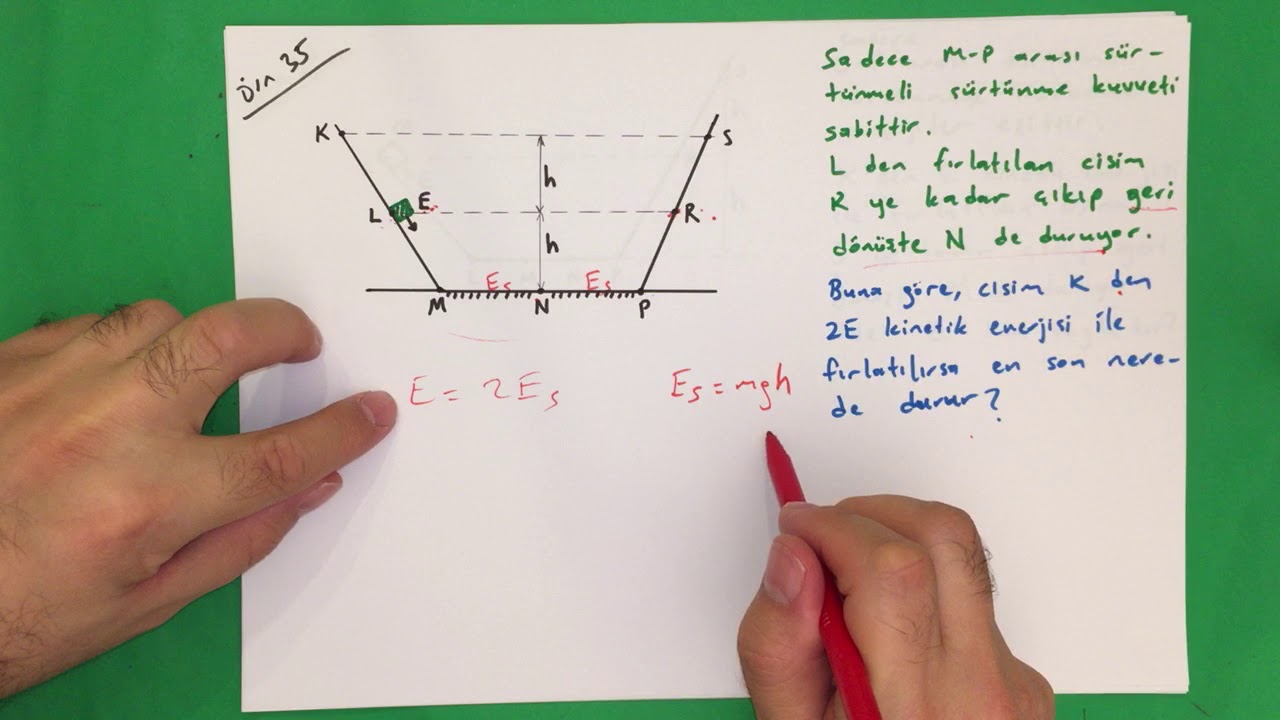 Örn 35
K
S
h
L
E
R
h
Es
Es
M
N
P
E = 2Es
Es = mgh
Sadece M-P arası sür-
tünmeli sürtünme kuvveti
sabittir.
L den fırlatılan cisim
R ye kadar çıkıp geri
dönüşte N de duruyor.
Buna göre, cisim K den
2E kinetik enerjisi ile
fırlatılırsa en son nere-
de durur?